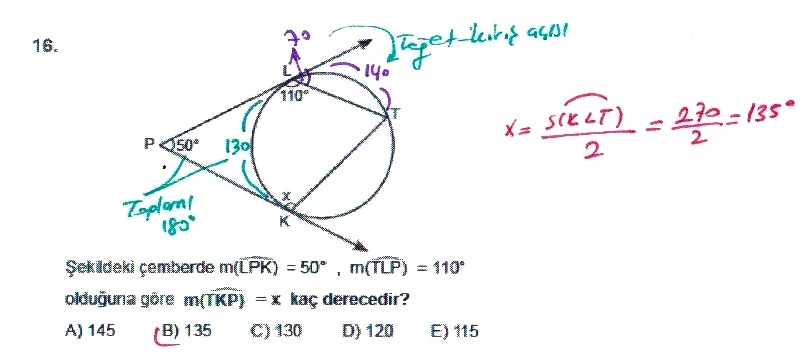 16.
70
Teğet-kiriş açısı
L
140
110°
T
P
50°
130
x = s(KLT) / 2 = 270 / 2 = 135°
x
K
Toplamı
180°
Şekildeki çemberde m(LPK) = 50° , m(TLP) = 110°
olduğuna göre m(TKP) = x kaç derecedir?
A) 145 B) 135 C) 130 D) 120 E) 115